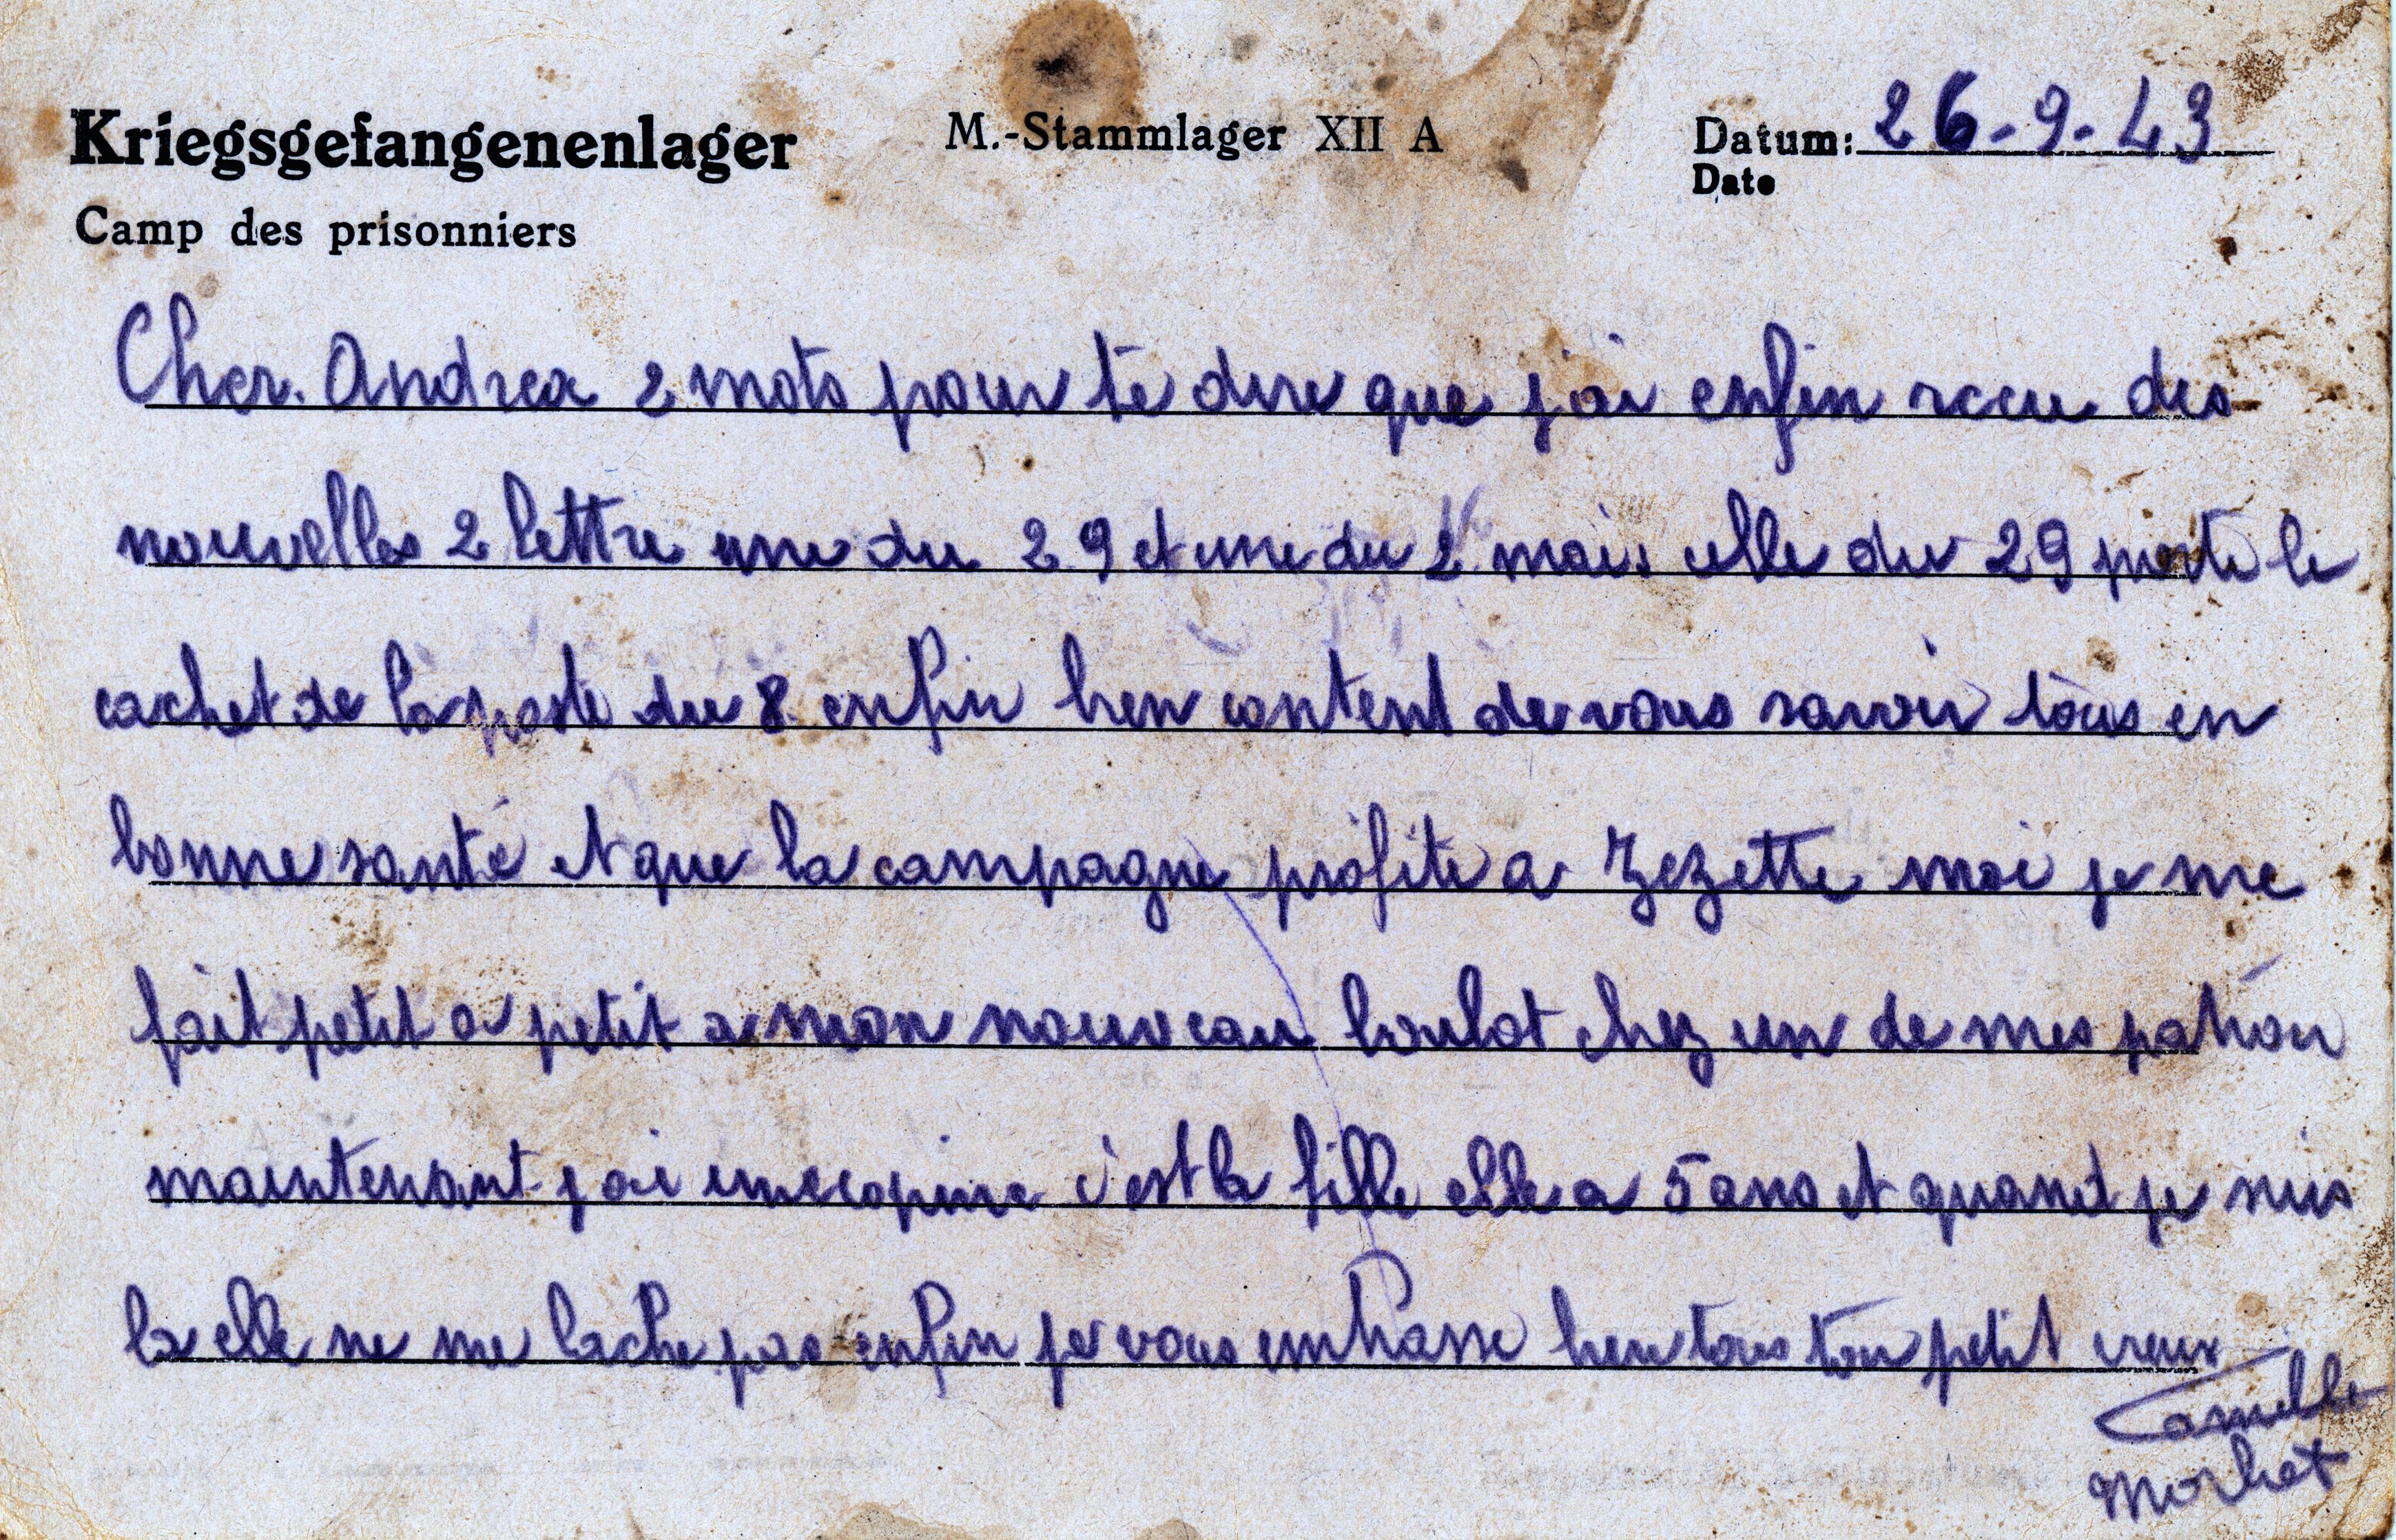 Kriegsgefangenenlager M.-Stammlager XII A Datum: 26-9-43
Date
Camp des prisonniers
Cher. Andrea 2 mots pour te dire que j'ai enfin recu des
nouvelles 2 lettre une du 29 et une du 2 mais celle du 29 porte le
cachet de la poste du 8 enfin bien content de vous savoir tous en
bonne santé et que la campagne profite a Zezette moi je me
fait petit a petit a mon nouveau boulot chez un de mes patron
maintenant j'ai une copine c'est la fille elle a 5 ans et quand je suis
la elle ne me lache pas enfin je vous embrasse bien tous ton petit vieux
Camille
Morhet